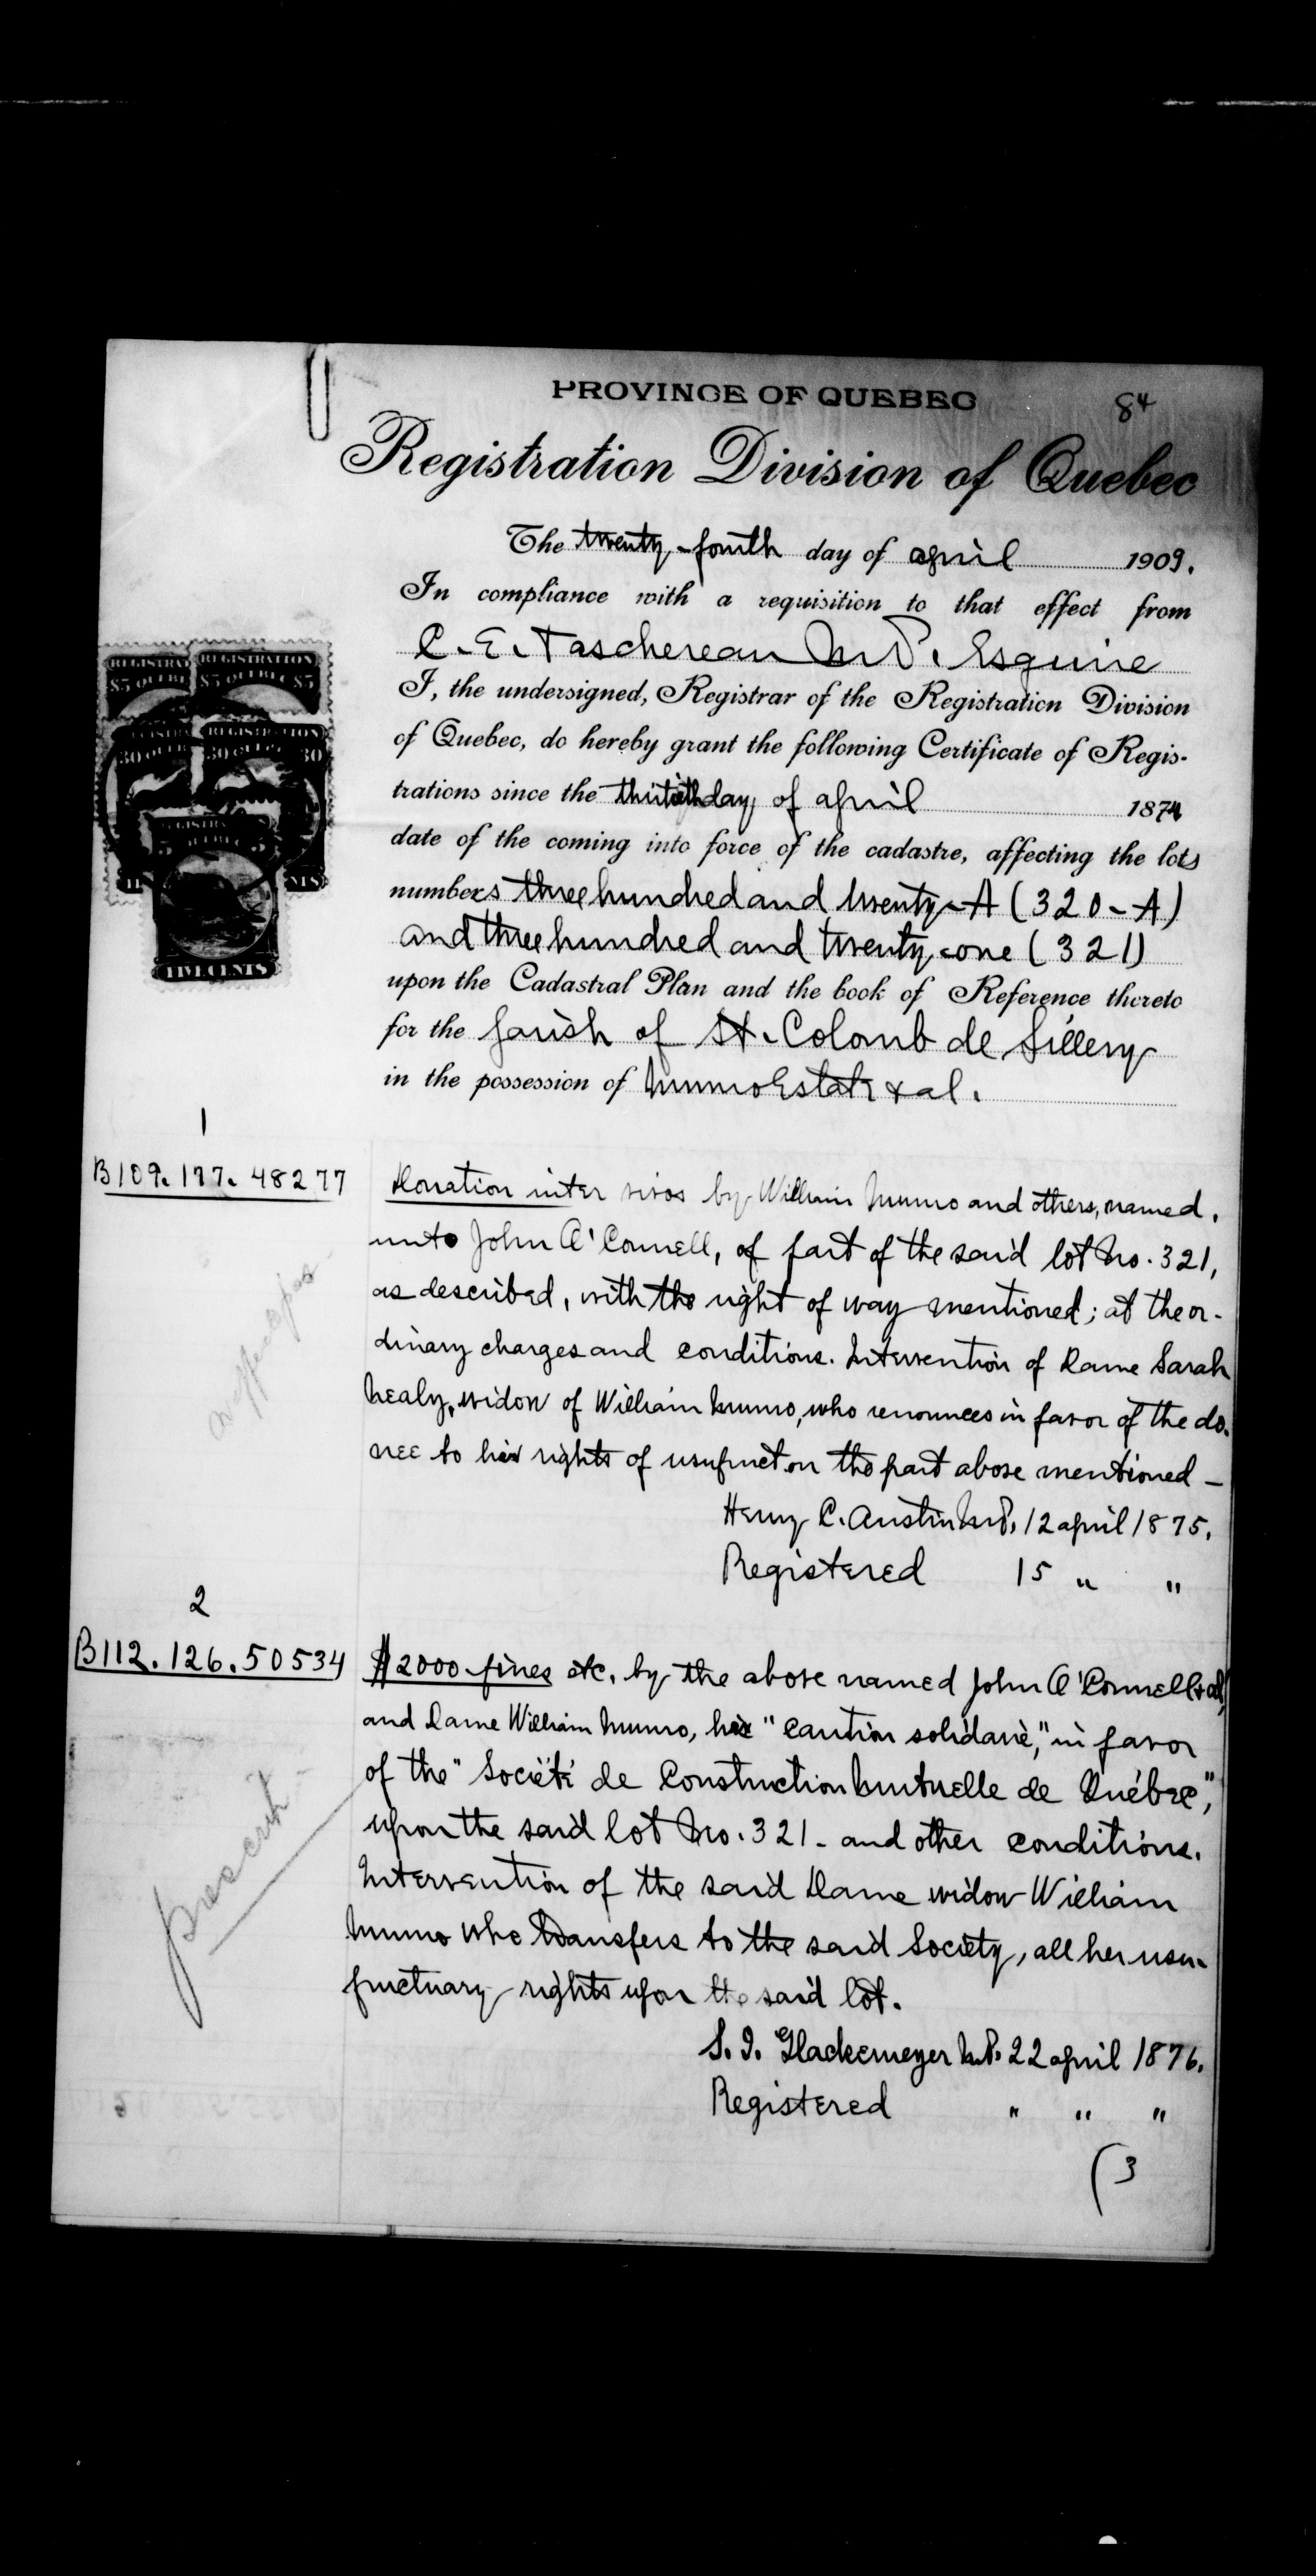 PROVINCE OF QUEBEC
84
Registration Division of Quebec
The twenty-fourth day of april 1909.
In compliance with a requisition to that effect from
C. E. Taschereau N.P. Esquire
I, the undersigned, Registrar of the Registration Division
of Quebec, do hereby grant the following Certificate of Regis-
trations since the thirtieth day of april 1874
date of the coming into force of the cadastre, affecting the lots
numbers three hundred and twenty-A (320-A)
and three hundred and twenty-one (321)
upon the Cadastral Plan and the book of Reference thereto
for the parish of St. Colomb de Sillery
in the possession of Munro Estate & al.
REGISTRATION
$5 QUEBEC $5
30 QUEBEC 30
FIVE CENTS
1
B109. 177. 48277
Donation inter vivos by William Munro and others, named,
unto John O'Connell, of part of the said lot No. 321,
as described, with the right of way mentioned; at the or-
dinary charges and conditions. Intervention of Dame Sarah
Healy, widow of William Munro, who renounces in favor of the do-
nee to her rights of usufruct on the part above mentioned -
Henry C. Austin N.P. 12 april 1875.
Registered 15 " "
2
B112. 126. 50534
$2000 fines etc. by the above named John O'Connell & al,
and Dame William Munro, his "caution solidaire," in favor
of the "Société de Construction Mutuelle de Québec",
upon the said lot No. 321 - and other conditions.
Intervention of the said Dame widow William
Munro who transfers to the said Society, all her usu-
fructuary rights upon the said lot.
prescrit
S. I. Glackemeyer N.P. 22 april 1876.
Registered " " "
(3